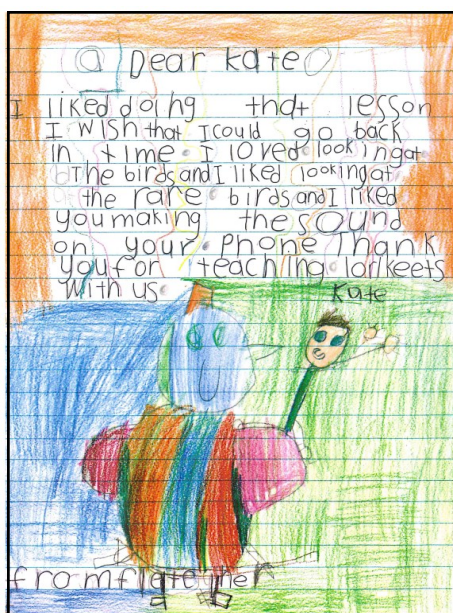 Dear kate
I liked doing that lesson
I wish that I could go back
in time. I loved looking at
The birds and I liked looking at
the rare birds and I liked
you making the sound
on your Phone Thank
you for teaching lorikeets
with us Kate
from